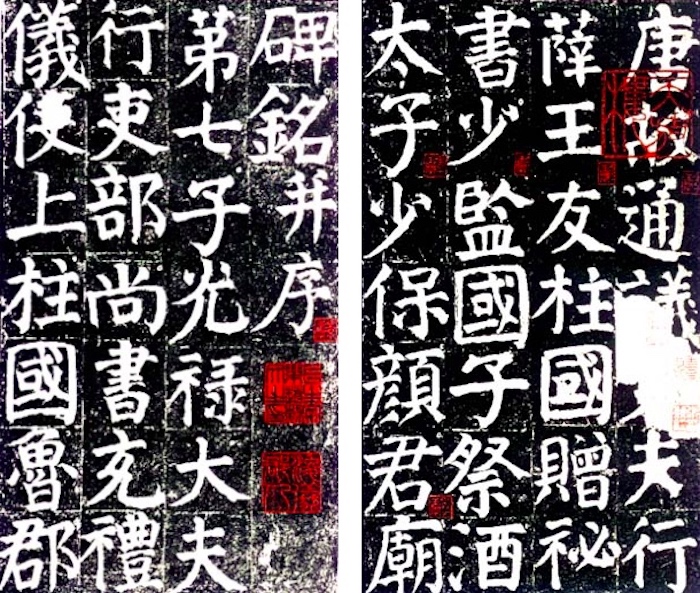 唐故通議夫行
薛王友柱國贈祕
書少監國子祭酒
太子少保顏君廟
碑銘并序
第七子光禄大夫
行吏部尚書充禮
儀使上柱國魯郡